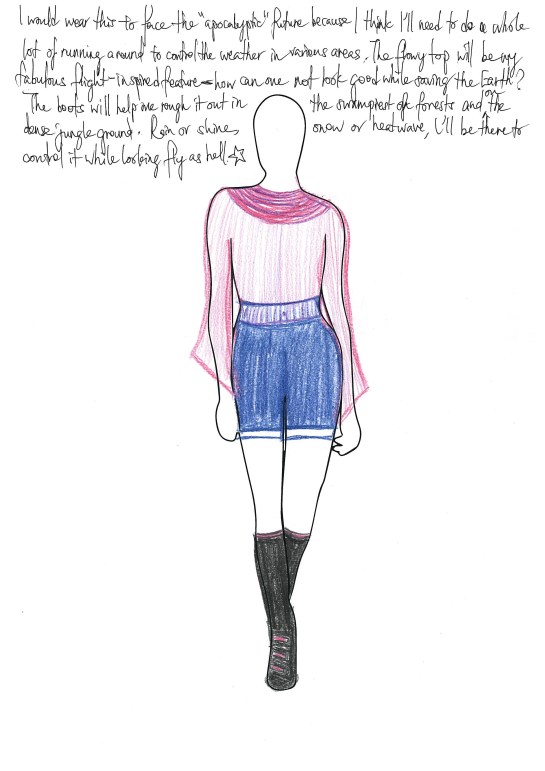 I would wear this to face the "apocalyptic" future because I think I'll need to do a whole
lot of running around to control the weather in various areas. The flowy top will be my
fabulous flight-inspired feature - how can one not look good while saving the Earth?
The boots will help me rough it out in the swampiest of forests and the
dense jungle ground. Rain or shine, snow or heatwave, I'll be there to
control it while looking fly as hell ☆